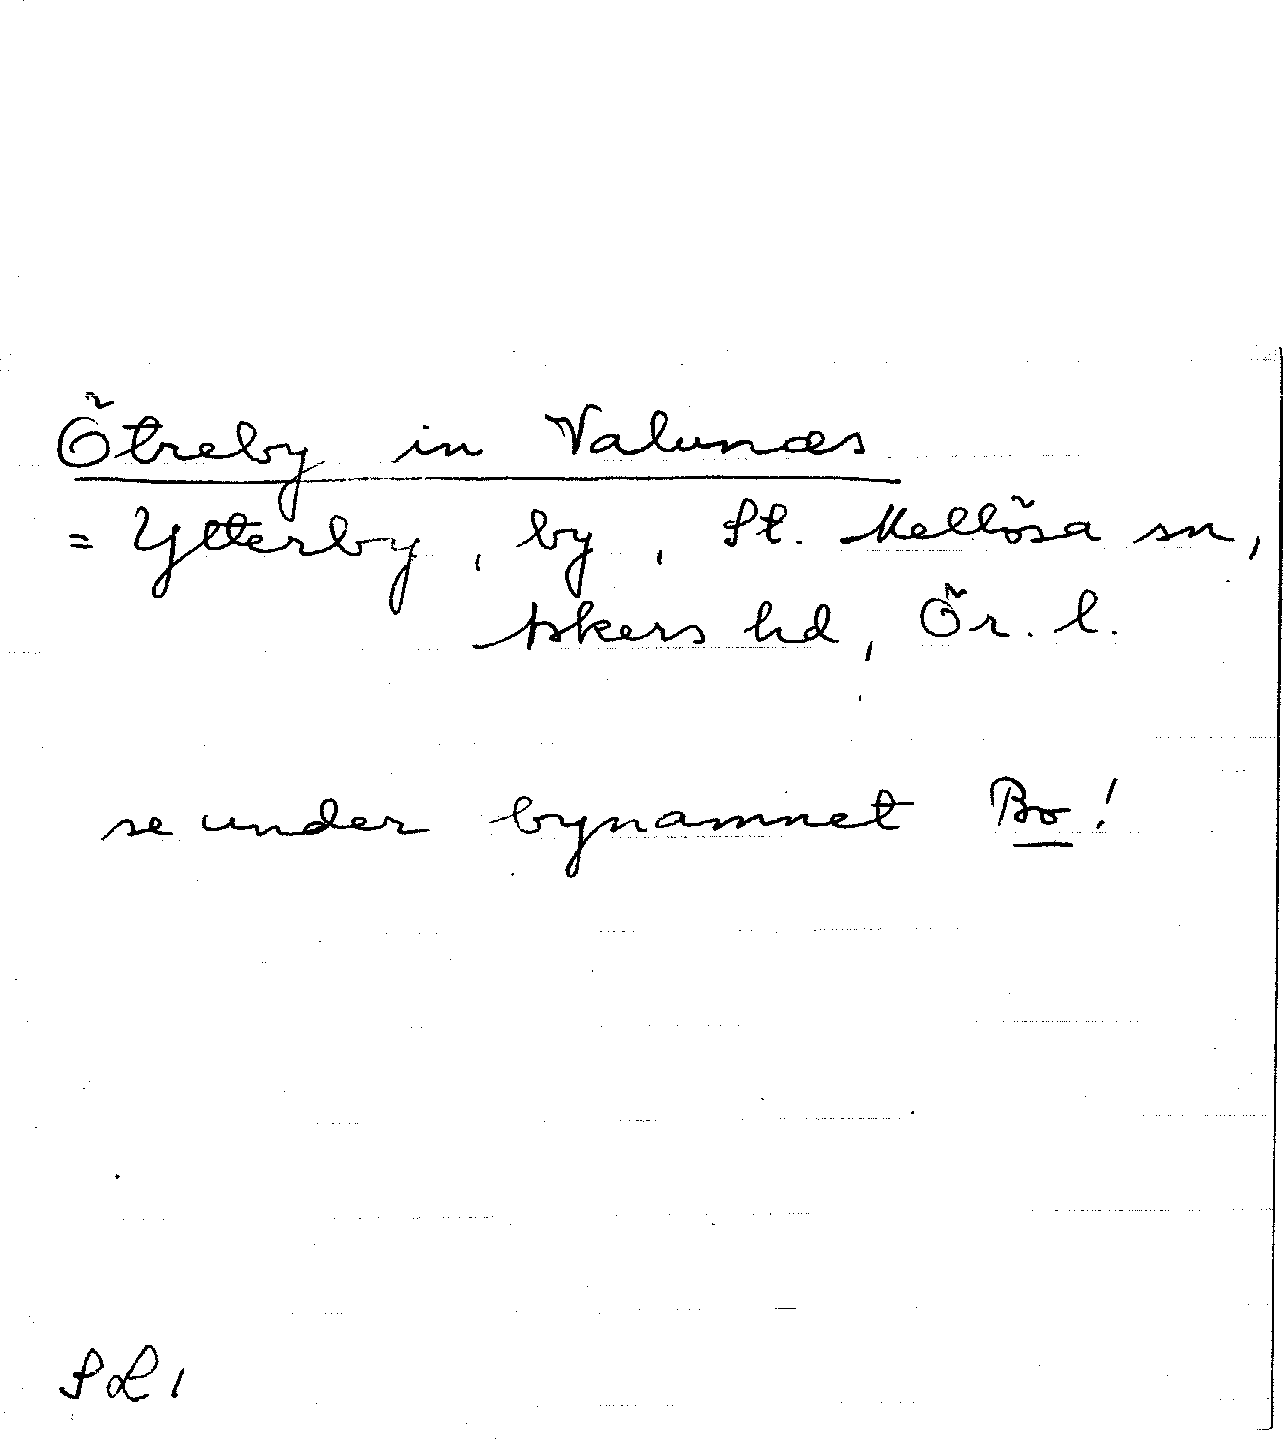 Ötreby in Valunæs
= Ytterby, by, St. Mellösa sn,
Askers hd, Ör. l.
se under bynamnet Bo!
SL 1